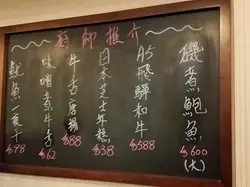 廚師推介
磯煮鮑魚
$600
(大)
A5飛驒和牛
$588
日本芝士年糕
$38
牛舌唐揚
$88
味噌煮牛舌
$62
魷魚一夜干
$98